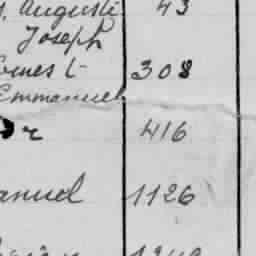 Augusti 43
Joseph
Ernest 308
Emmanuel
r 416
anuel 1126